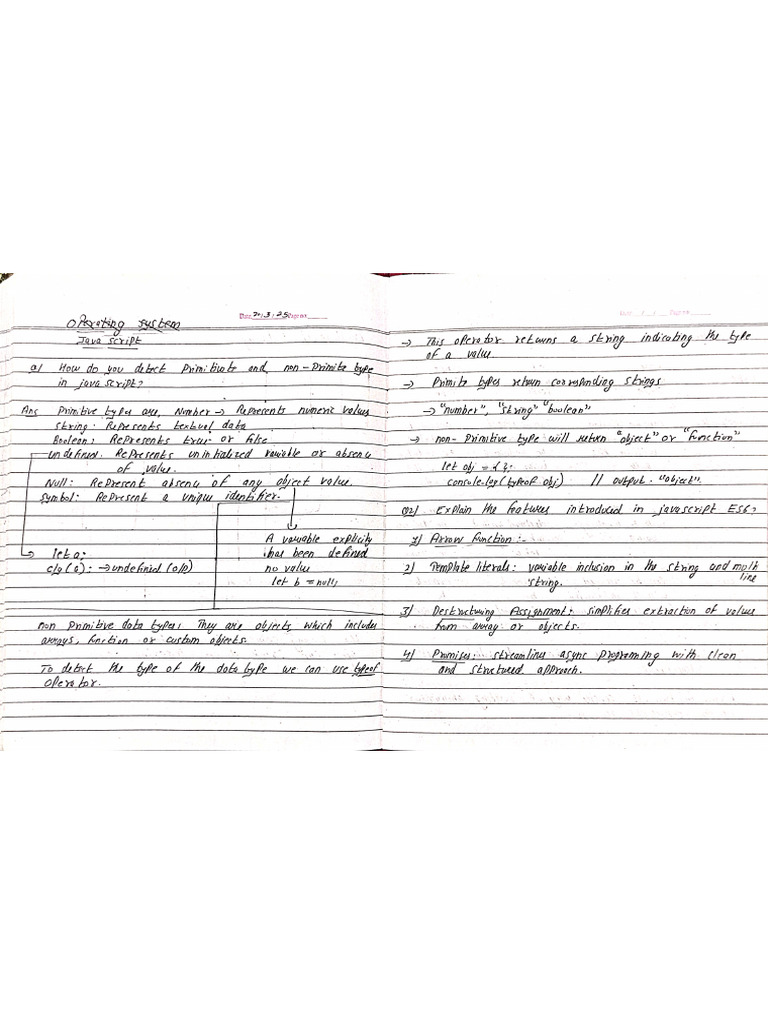 Operating system
Date 20.3.25 Page no.
Java script
Q1 How do you detect Primitivate and, non-Primite type
in java script?
Ans Primitive types are, Number → Represents numeric values
string: Represents textual data
Boolean: Represents true or false
undefined: Represents uninitialized variable or absence
of value.
Null: Represent absence of any object value.
symbol: Represent a unique identifier.
A variable explicity
has been defined
no value
let b = null;
→ let a;
clg(a): → undefined (O/P)
non Primitive data types: They are objects, which includes
arrays, function or custom objects.
To detect the type of the data type we can use typeof
operator.
→ This operator returns a string indicating the type
of a value.
→ Primite types return corresponding strings
→ "number", "string" "boolean"
→ non-Primitive type will return "object" or "function"
let obj = { };
console.log(typeof obj) // output. "object".
Q2) Explain the features introduced in javascript ES6?
1) Arrow Function:-
2) Template literals: variable inclusion in the string and multi
line
string.
3) Destructuring Assignment: simplifies extraction of values
from array or objects.
4) Promises: streamlines async programming with clean
and structured approach.